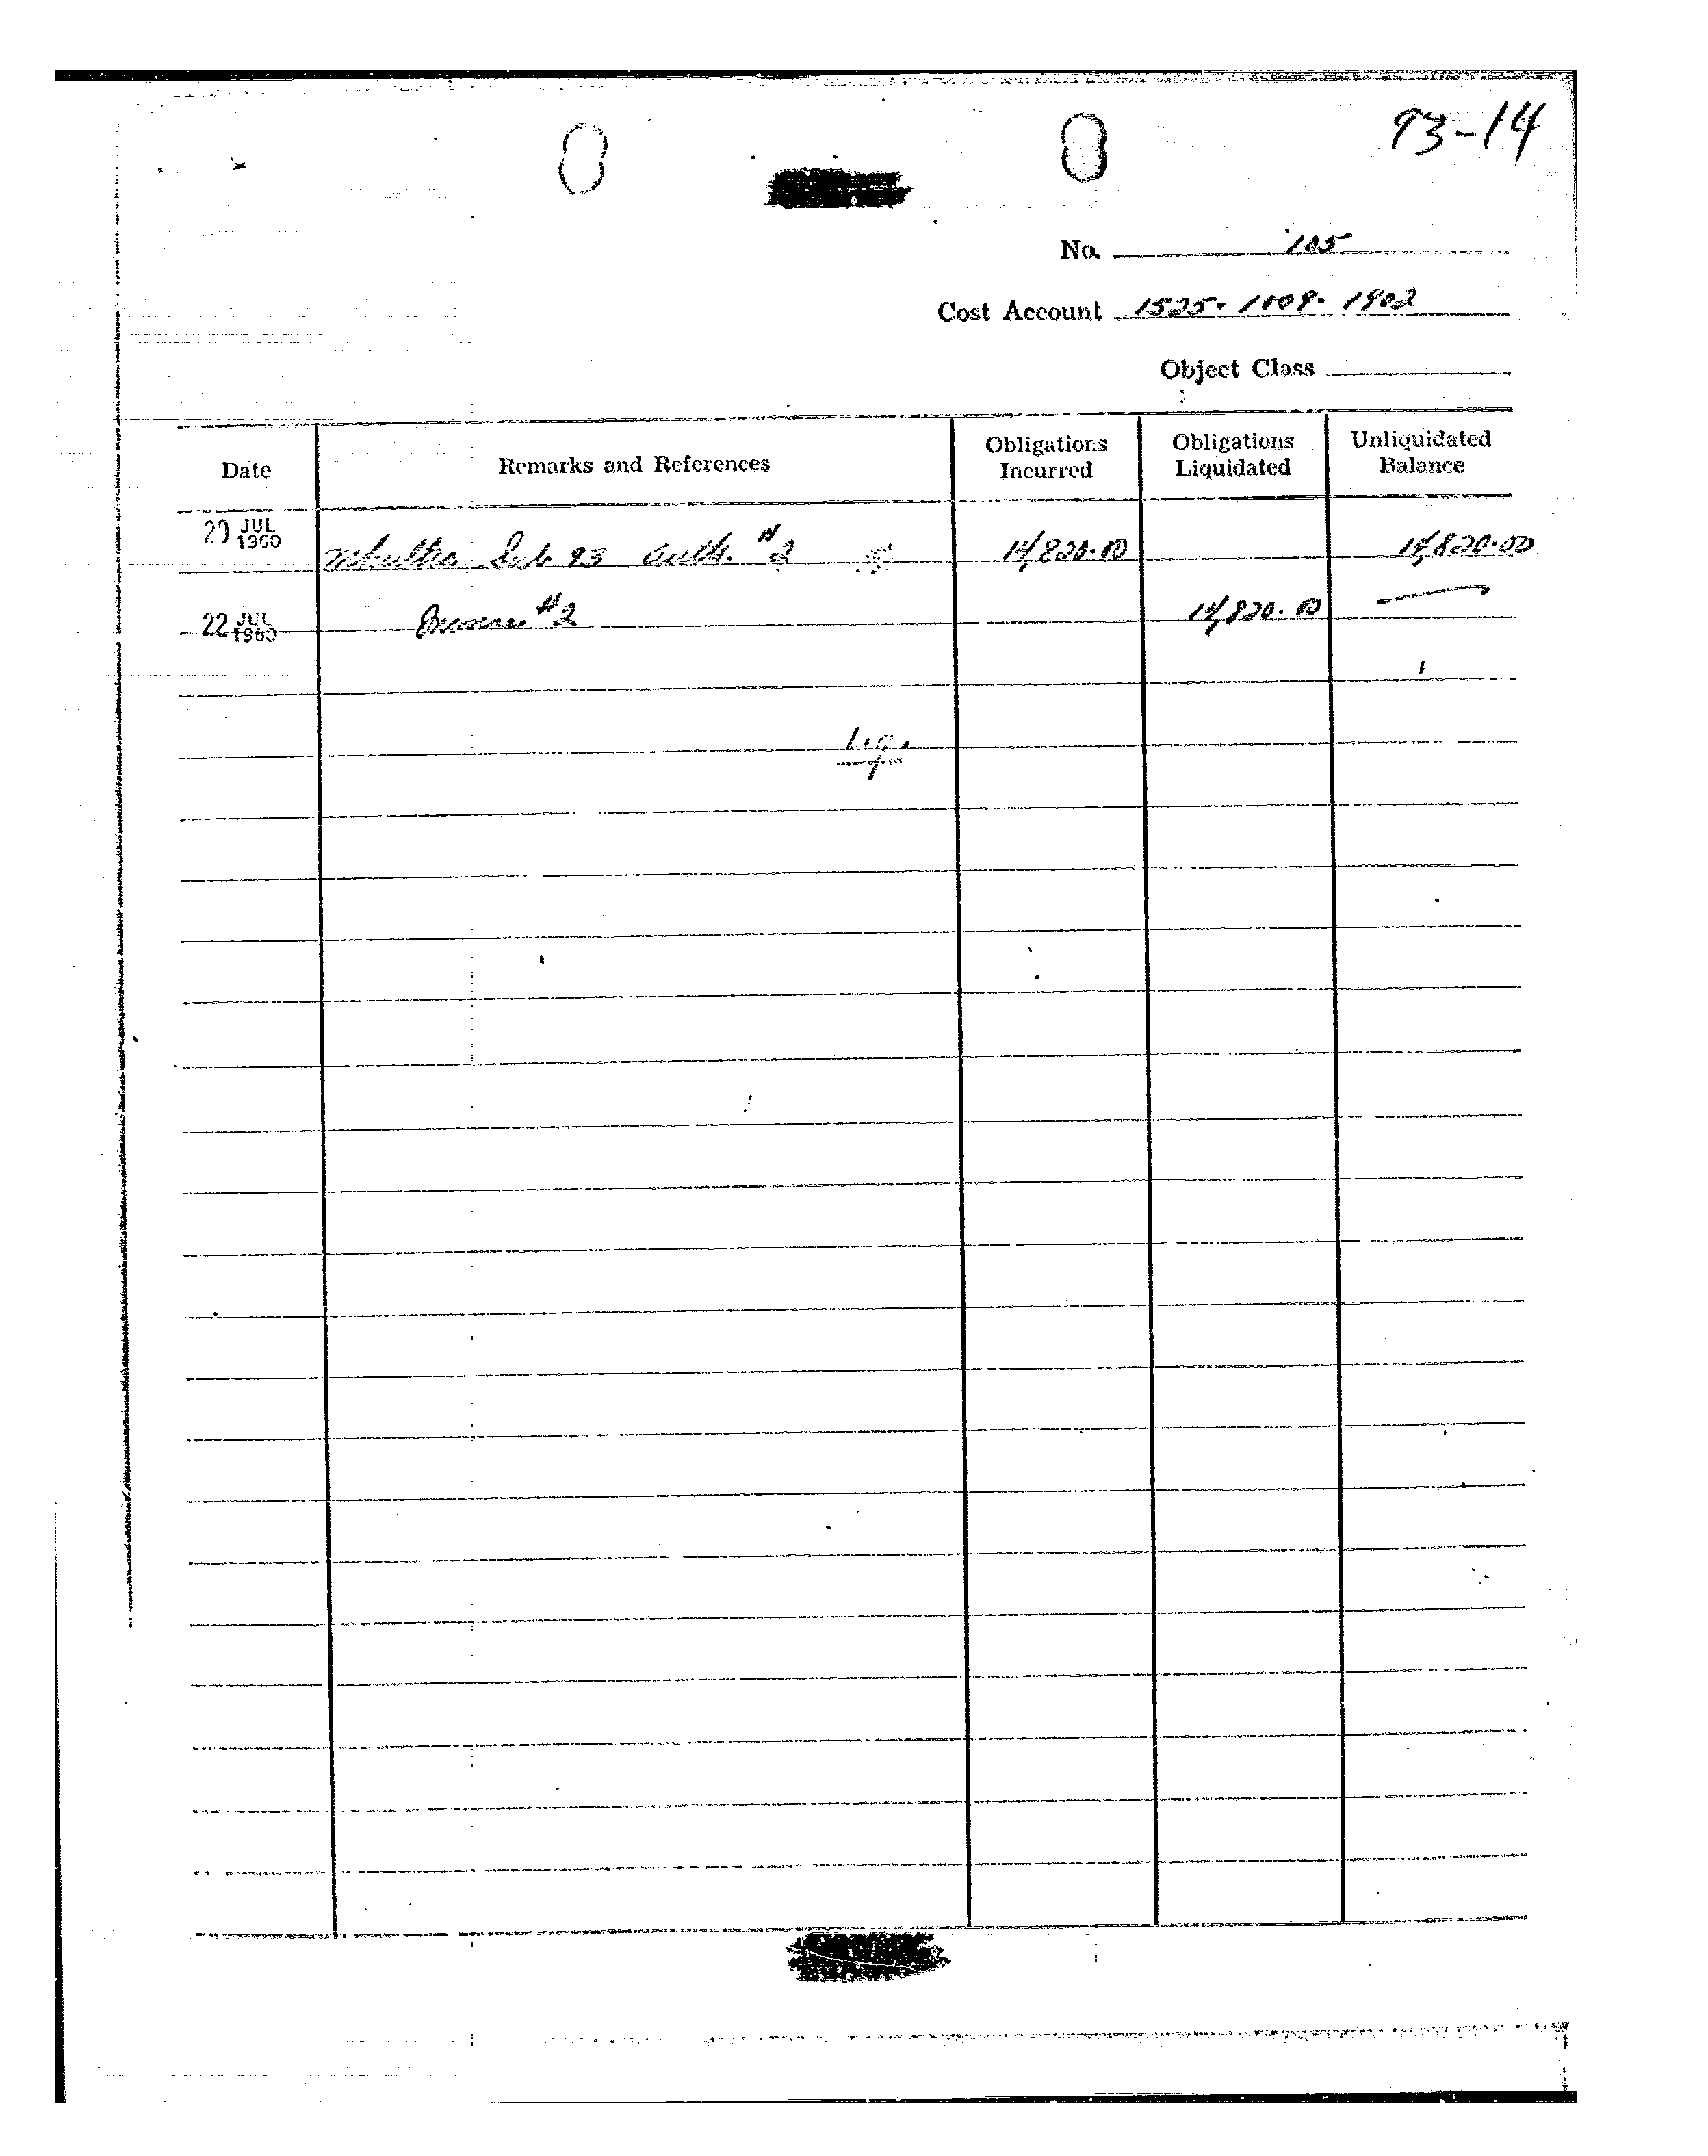 93-14
No. 105
Cost Account 1525-1009-1902
Object Class
Date Remarks and References Obligations Incurred Obligations Liquidated Unliquidated Balance
20 JUL 1960 Mkultra Sub 93 Auth. #2 14,820.00 14,820.00
22 JUL 1960 Invoice #2 14,820.00 —